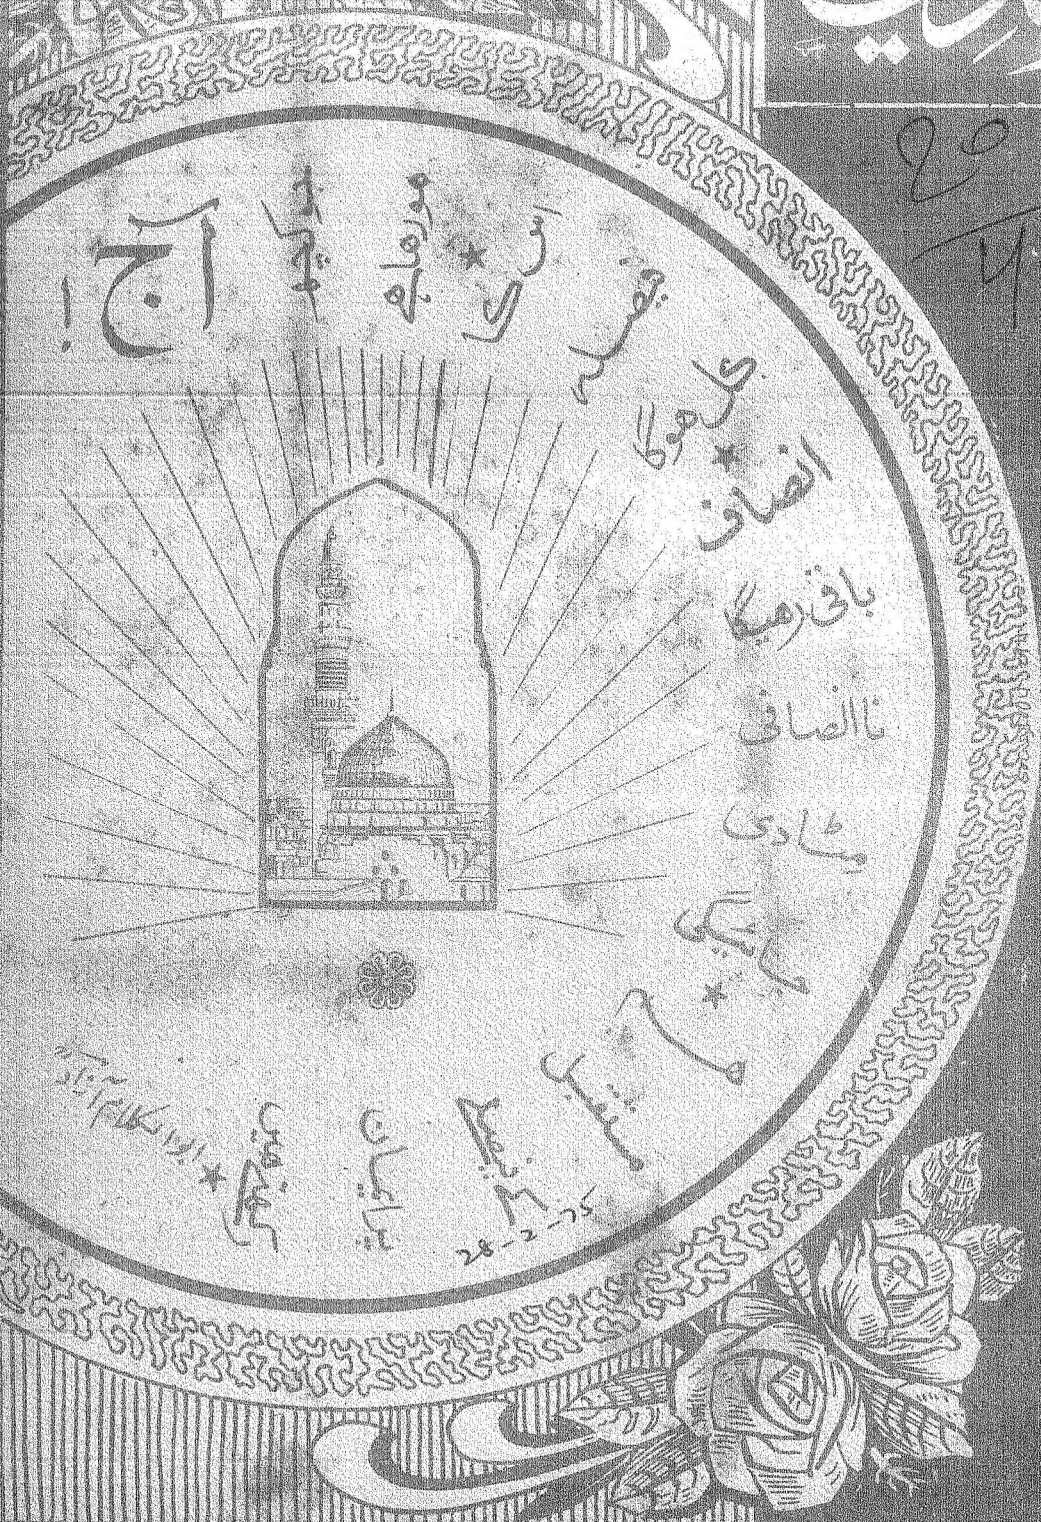 آج !
جو کچھ
ہو رہا ہے
اس کا
فیصلہ
کل ہوگا
انصاف
باقی رہیگا
ناانصافی
مٹادی
جائیگی
ہم
مستقبل
فیصلہ
ایمان
رکھتے ہیں
ابوالکلام آزاد
28-2-75